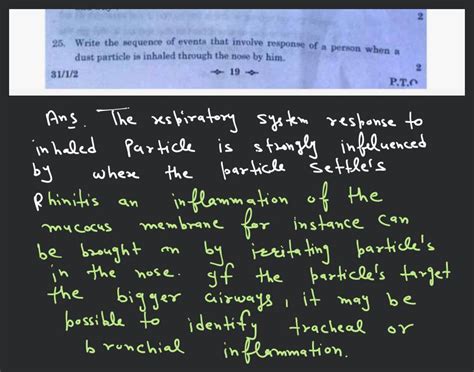 2
25. Write the sequence of events that involve response of a person when a
dust particle is inhaled through the nose by him.
2
31/1/2
19
P.T.O
Ans. The respiratory system response to
inhaled Particle is strongly infeluenced
by where the particle settle's
Rhinitis an inflammation of the
mucocus membrane for instance can
be brought on by irritating particle's
in the nose. If the particle's target
the bigger airways, it may be
possible to identify tracheal or
bronchial inflammation.